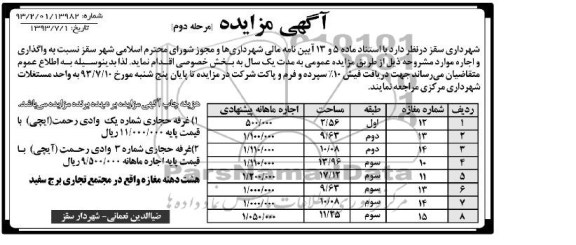 شماره: ۹۳/۲/۰۱/۱۳۹۸۲
تاریخ: ۱۳۹۳/۷/۱
آگهی مزایده (مرحله دوم)
شهرداری سقز درنظر دارد با استناد ماده ۵ و ۱۳ آیین نامه مالی شهرداری‌ها و مجوز شورای محترم اسلامی شهر سقز نسبت به واگذاری
و اجاره موارد مشروحه ذیل از طریق مزایده عمومی به مدت یک سال به بخش خصوصی اقدام نماید. لذا بدینوسیله به اطلاع عموم
متقاضیان می‌رساند جهت دریافت فیش ۱۰٪ سپرده و فرم و پاکت شرکت در مزایده تا پایان پنج شنبه مورخ ۹۳/۷/۱۰ به واحد مستغلات
شهرداری مرکزی مراجعه نمایند.
ردیف شماره مغازه طبقه مساحت اجاره ماهانه پیشنهادی
۱ ۱۲ اول ۳/۵۶ ۵۰۰/۰۰۰
۲ ۱۳ دوم ۹/۶۳ ۱/۱۰۰/۰۰۰
۳ ۱۴ دوم ۱۰/۰۸ ۱/۱۱۰/۰۰۰
۴ ۱۰ سوم ۱۳/۹۶ ۱/۱۱۰/۰۰۰
۵ ۱۱ سوم ۱۷/۱۲ ۱/۲۰۰/۰۰۰
۶ ۱۳ سوم ۹/۶۳ ۱/۰۰۰/۰۰۰
۷ ۱۴ سوم ۱۰/۰۸ ۱/۰۰۰/۰۰۰
۸ ۱۵ سوم ۱۱/۳۵ ۱/۰۵۰/۰۰۰
هزینه چاپ آگهی مزایده بر عهده برنده مزایده می‌باشد.
۱)غرفه حجاری شماره یک وادی رحمت(ایچی) با
قیمت پایه ۱۱/۰۰۰/۰۰۰ ریال
۲)غرفه حجاری شماره ۳ وادی رحمت (آیچی) با
قیمت پایه اجاره ماهانه ۹/۵۰۰/۰۰۰ ریال
هشت دهنه مغازه واقع در مجتمع تجاری برج سفید
ضیاالدین نعمانی- شهردار سقز